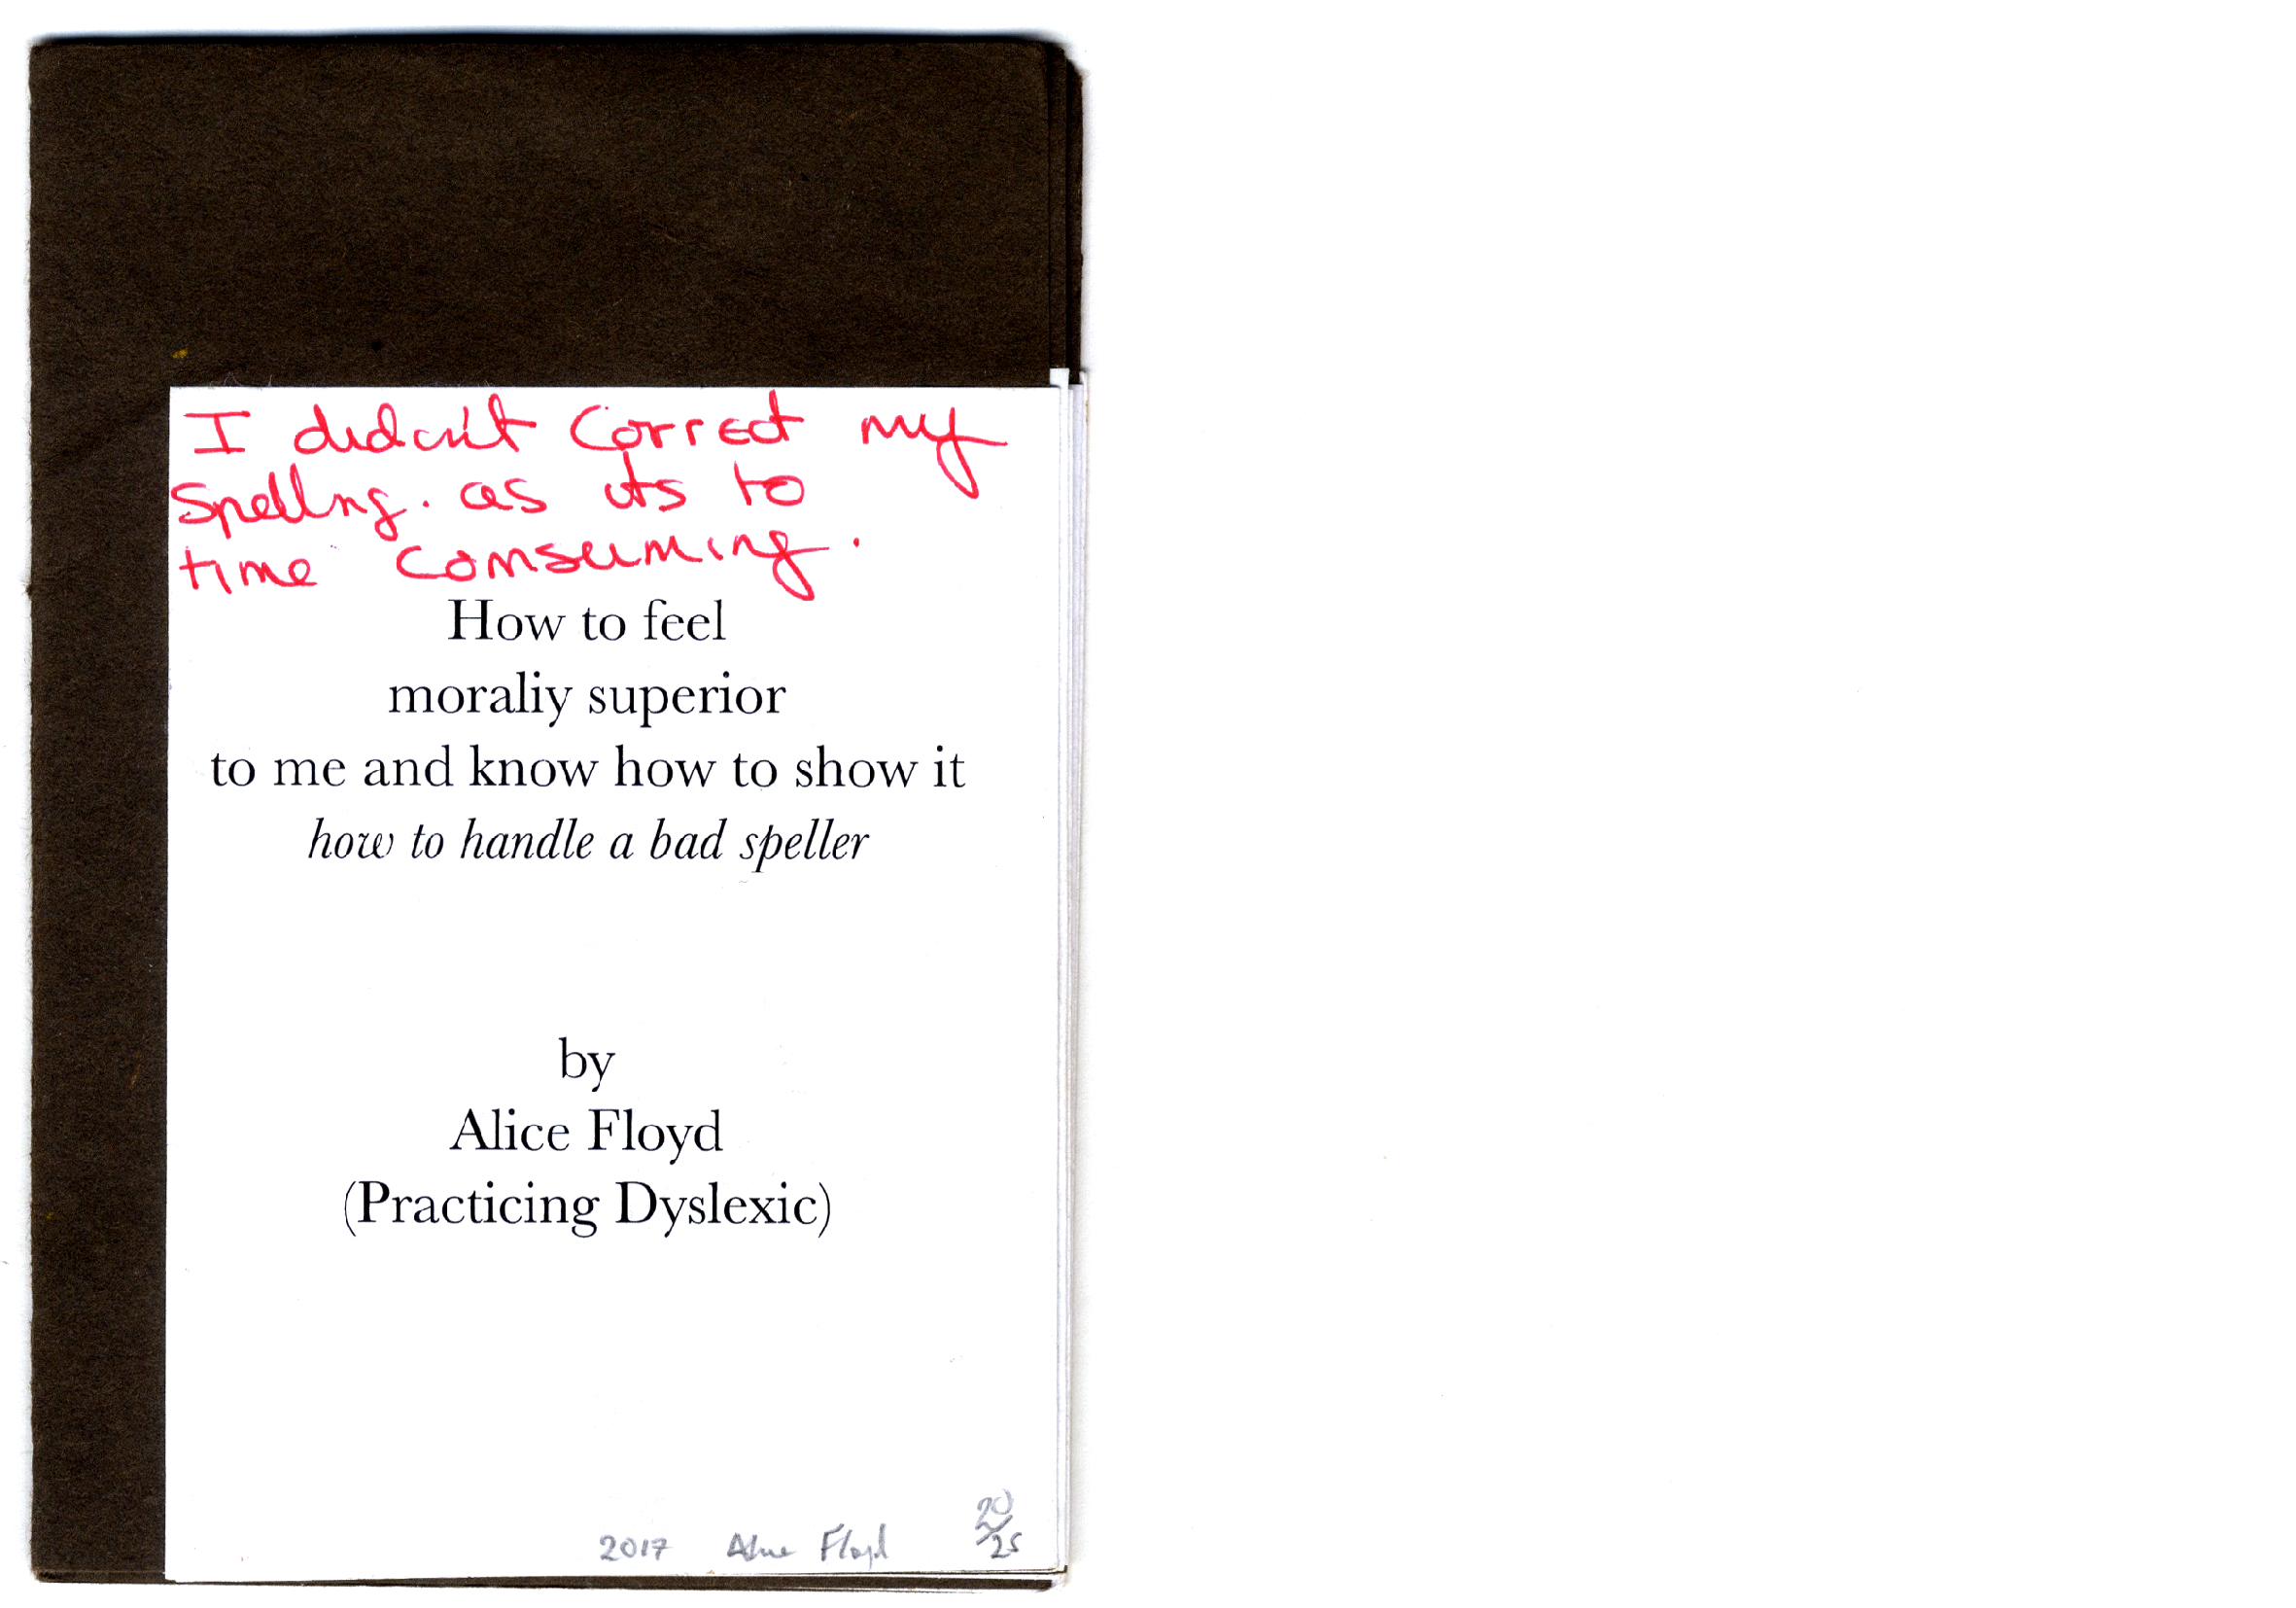 I didn't Correct my
Spellng. as its to
time comsuming.
How to feel
moraliy superior
to me and know how to show it
how to handle a bad speller
by
Alice Floyd
(Practicing Dyslexic)
2017 Alice Floyd 20/25